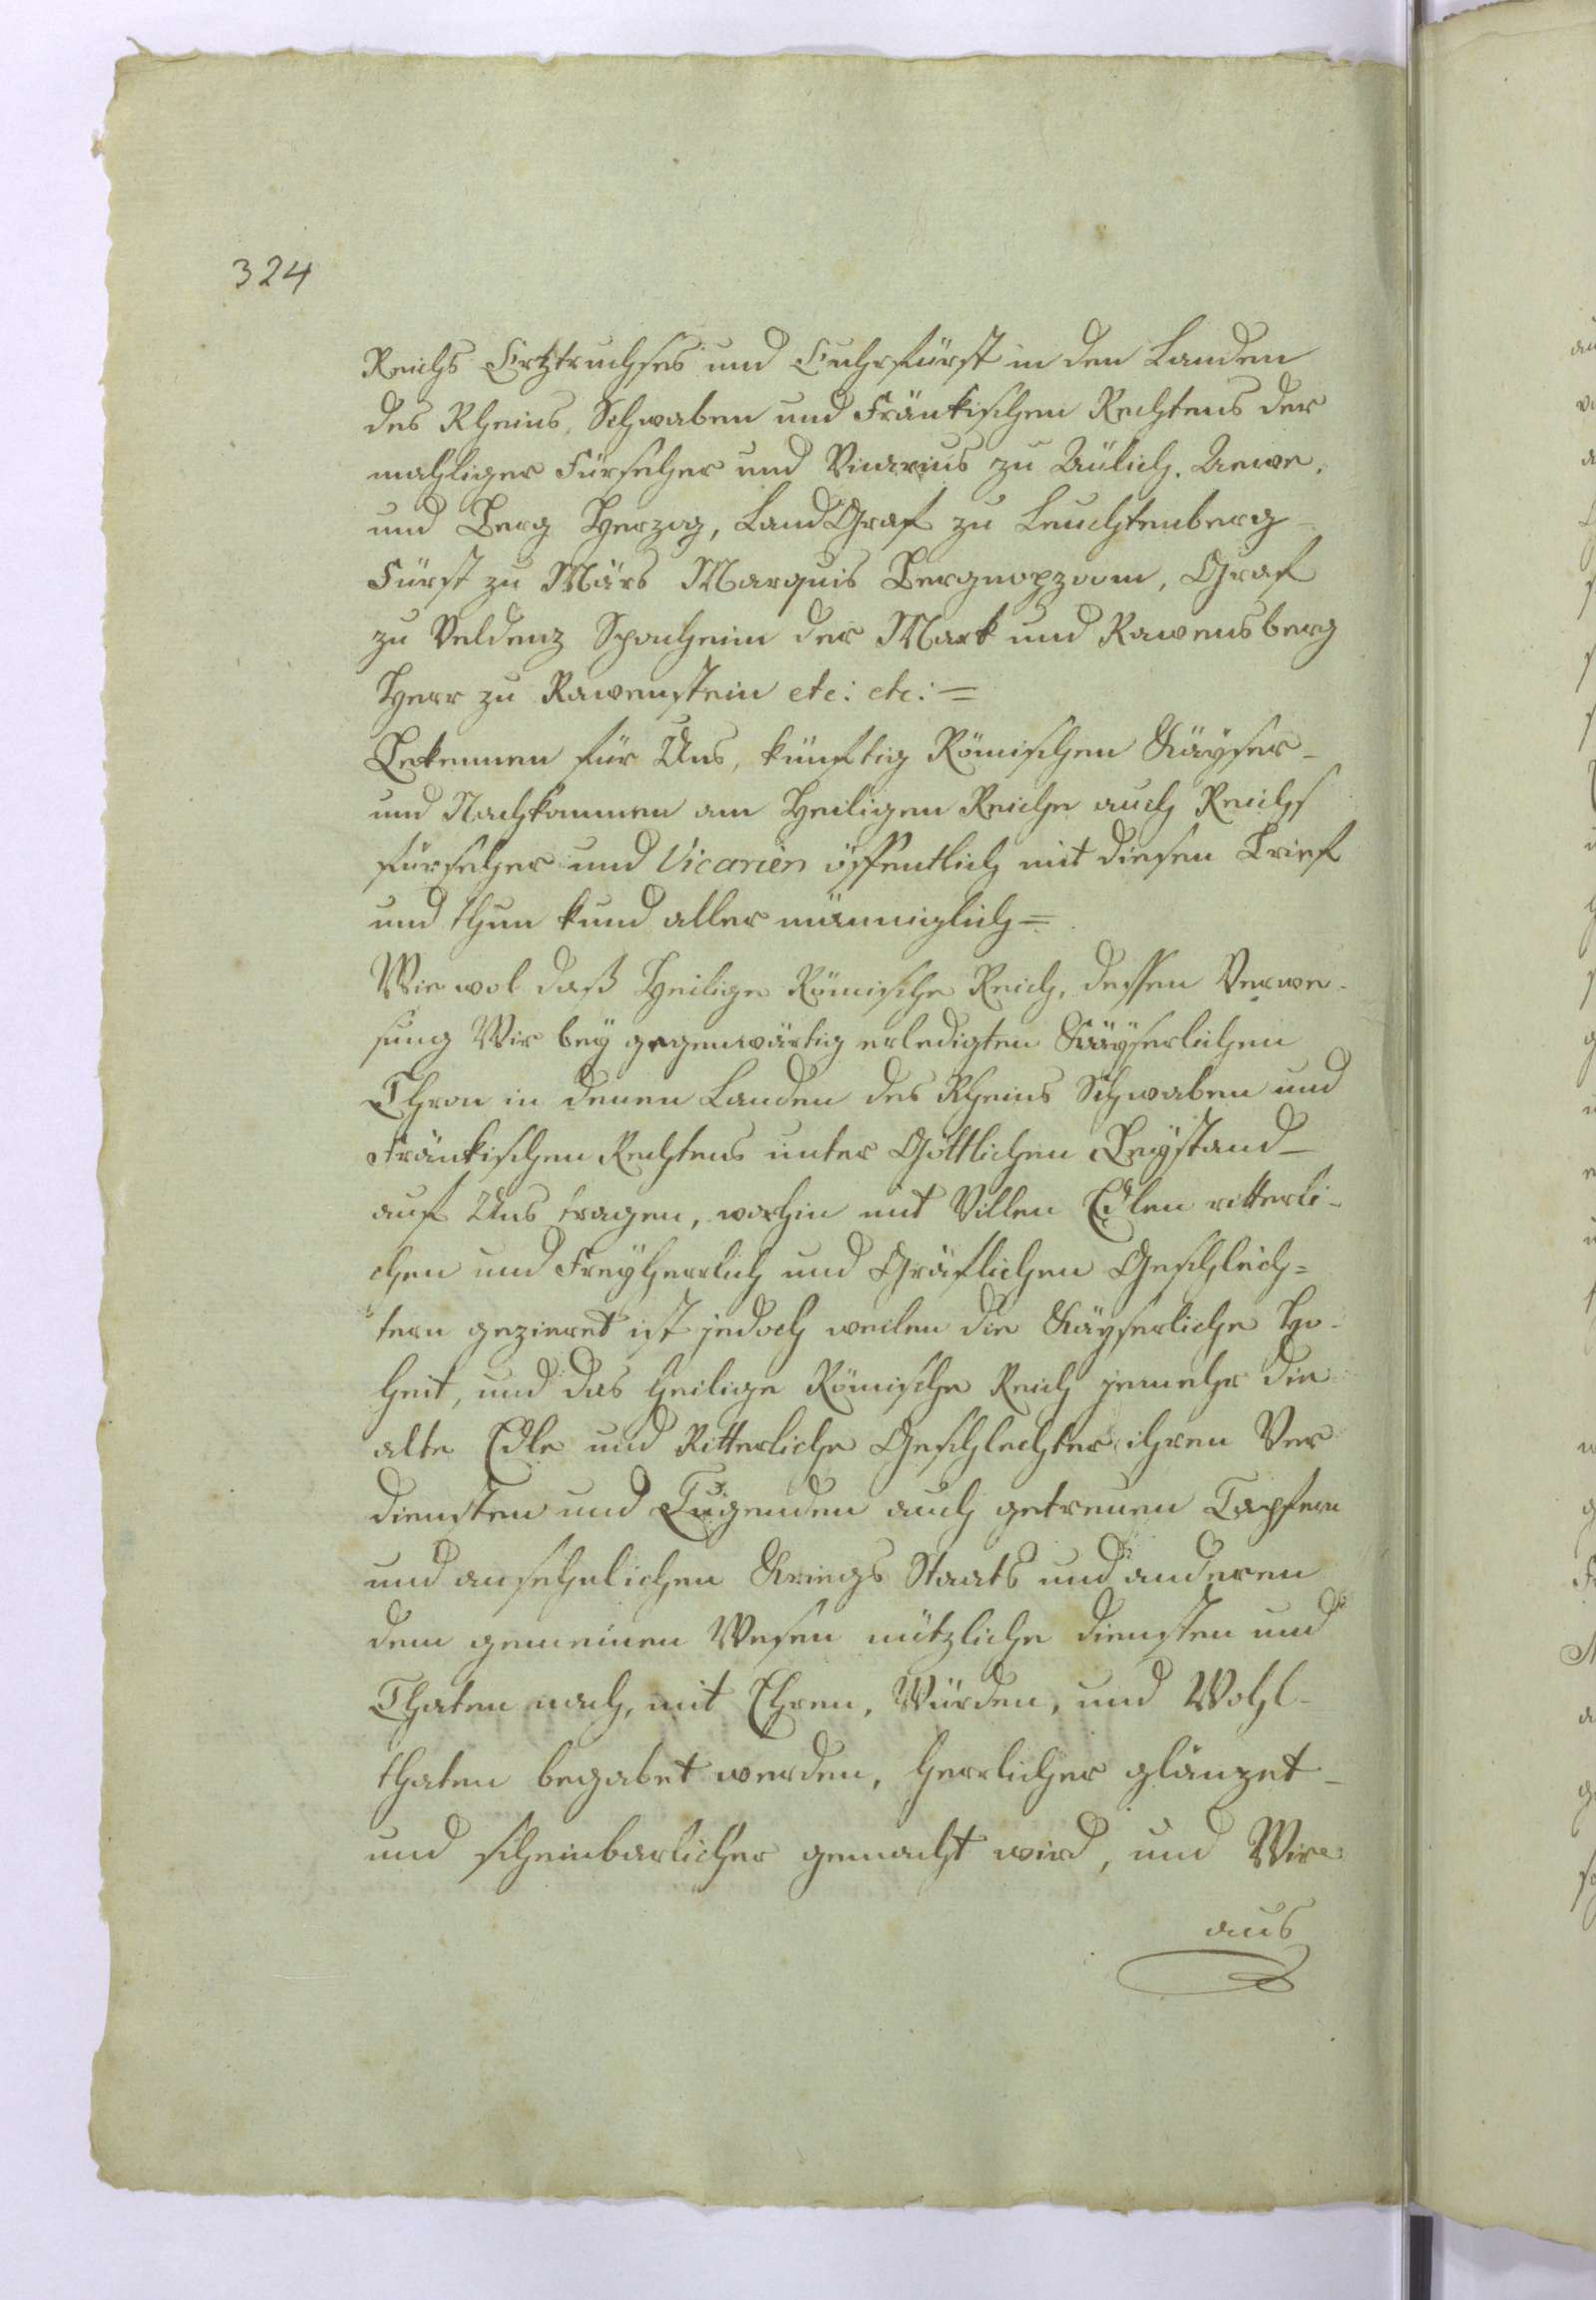 324
Reichs Ertztruchses und Cuhrfürst in den Landen
des Rheins, Schwaben und Fränkischen Rechtens der
mahliger Fürseher und Vicarius zu
und Berg Herzog, LandGraf zu Leuchtenberg
Fürst zu Märs Marquis Bergnopzoom, Graf
zu Veldenz Sponheim der Mark und Rawensberg
Herr zu Rawenstein etc: etc: =
Bekennen für Uns, künftig Römischen Käyser-
und Nachkommen am Heiligen Reiche auch Reichs
fürseher und Vicarien öffentlich mit diesen Brief
und thun kund aller männiglich =
Wie wol daß Heilige Römische Reich, dessen Verwe-
sung Wir bey gegenwärtig erledigten Käyserlichen
Thron in denen Landen des Rheins Schwaben und
Fränkischen Rechtens unter Göttlichen Beystand-
auf Uns tragen, vorhin mit Villen Edlen ritterli-
chen und Freyherrlich und Gräflichen Geschlech=
tern gezieret ist jedoch weilen die Käyserliche Ho-
heit, und das heilige Römische Reich jemehr die
alte Edle und Ritterliche Geschlechter ihren Ver
diensten und Tugenden auch getreuen Tapfern
und ansehnlichen Kriegs Staats und anderen
dem gemeinen Wesen nützliche diensten und
Thaten nach, mit Ehren, Würden, und Wohl-
thaten begabet werden, herrlicher glänzet-
und scheinbarlicher gemacht wird, und Wir
aus